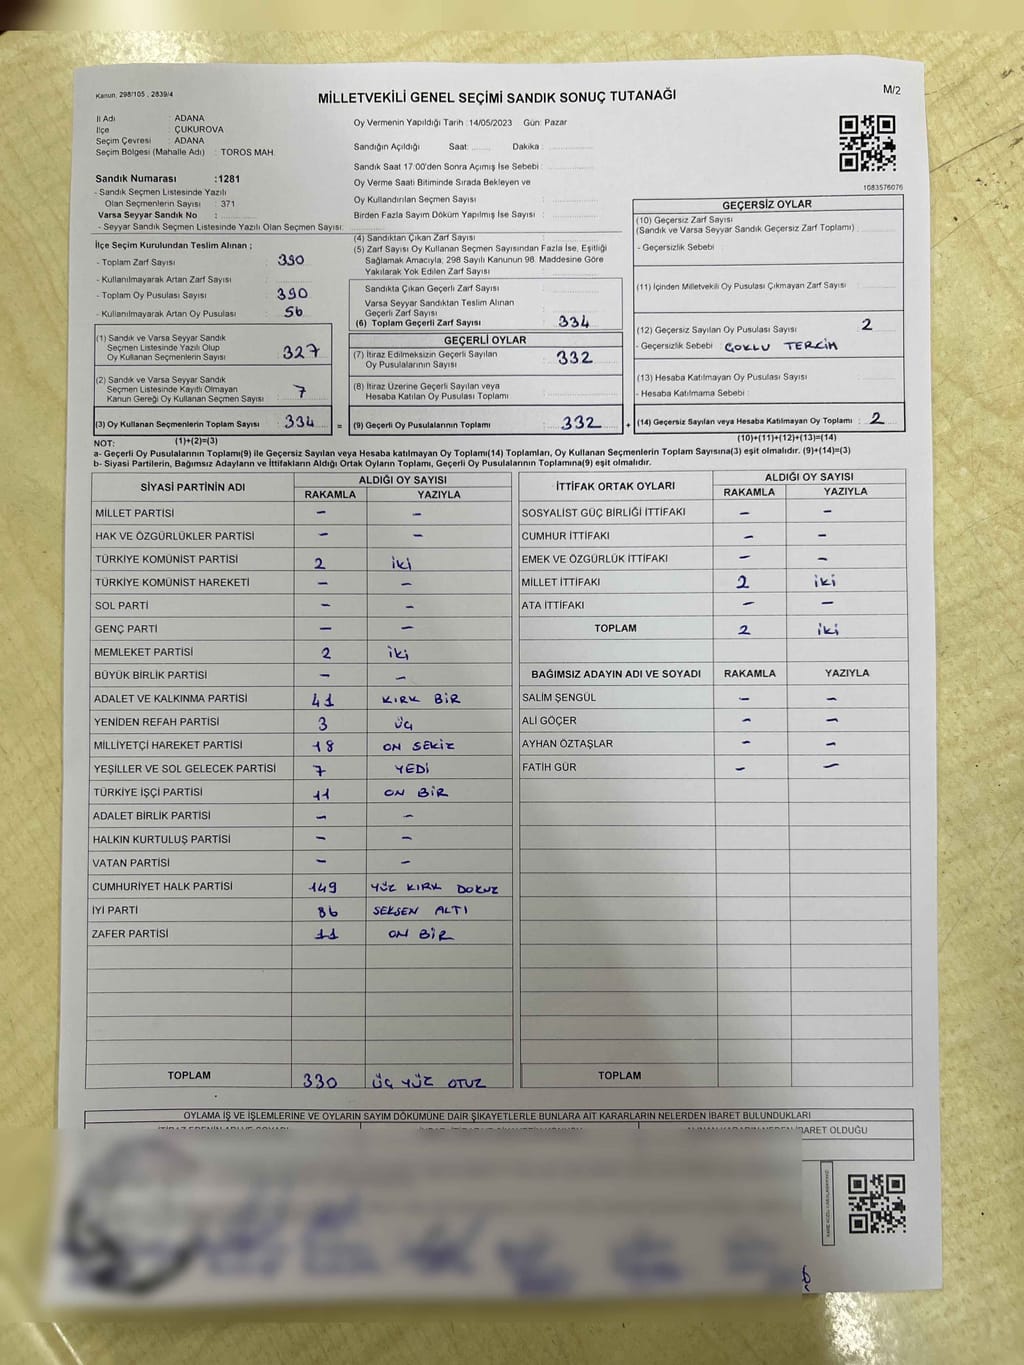 Kanun, 298/105 , 2839/4
M/2
MİLLETVEKİLİ GENEL SEÇİMİ SANDIK SONUÇ TUTANAĞI
İl Adı : ADANA
İlçe : ÇUKUROVA
Seçim Çevresi : ADANA
Seçim Bölgesi (Mahalle Adı) : TOROS MAH.
Sandık Numarası :1281
- Sandık Seçmen Listesinde Yazılı
Olan Seçmenlerin Sayısı : 371
Varsa Seyyar Sandık No :
- Seyyar Sandık Seçmen Listesinde Yazılı Olan Seçmen Sayısı:
Oy Vermenin Yapıldığı Tarih :14/05/2023 Gün: Pazar
Sandığın Açıldığı Saat: Dakika :
Sandık Saat 17:00'den Sonra Açılmış İse Sebebi :
Oy Verme Saati Bitiminde Sırada Bekleyen ve
Oy Kullandırılan Seçmen Sayısı :
Birden Fazla Sayım Döküm Yapılmış İse Sayısı :
1083576076
İlçe Seçim Kurulundan Teslim Alınan ;
- Toplam Zarf Sayısı : 390
- Kullanılmayarak Artan Zarf Sayısı :
- Toplam Oy Pusulası Sayısı : 390
- Kullanılmayarak Artan Oy Pusulası : 56
(1) Sandık ve Varsa Seyyar Sandık
Seçmen Listesinde Yazılı Olup
Oy Kullanan Seçmenlerin Sayısı : 327
(2) Sandık ve Varsa Seyyar Sandık
Seçmen Listesinde Kayıtlı Olmayan
Kanun Gereği Oy Kullanan Seçmen Sayısı : 7
(3) Oy Kullanan Seçmenlerin Toplam Sayısı : 334 =
(4) Sandıktan Çıkan Zarf Sayısı :
(5) Zarf Sayısı Oy Kullanan Seçmen Sayısından Fazla İse, Eşitliği
Sağlamak Amacıyla, 298 Sayılı Kanunun 98. Maddesine Göre
Yakılarak Yok Edilen Zarf Sayısı :
Sandıkta Çıkan Geçerli Zarf Sayısı :
Varsa Seyyar Sandıktan Teslim Alınan
Geçerli Zarf Sayısı :
(6) Toplam Geçerli Zarf Sayısı : 334
GEÇERLİ OYLAR
(7) İtiraz Edilmeksizin Geçerli Sayılan
Oy Pusulalarının Sayısı : 332
(8) İtiraz Üzerine Geçerli Sayılan veya
Hesaba Katılan Oy Pusulası Toplamı :
(9) Geçerli Oy Pusulalarının Toplamı : 332 +
GEÇERSİZ OYLAR
(10) Geçersiz Zarf Sayısı
(Sandık ve Varsa Seyyar Sandık Geçersiz Zarf Toplamı) :
- Geçersizlik Sebebi :
(11) İçinden Milletvekili Oy Pusulası Çıkmayan Zarf Sayısı :
(12) Geçersiz Sayılan Oy Pusulası Sayısı : 2
- Geçersizlik Sebebi : ÇOKLU TERCİH
(13) Hesaba Katılmayan Oy Pusulası Sayısı :
- Hesaba Katılmama Sebebi :
(14) Geçersiz Sayılan veya Hesaba Katılmayan Oy Toplamı : 2
NOT: (1)+(2)=(3)
(10)+(11)+(12)+(13)=(14)
a- Geçerli Oy Pusulalarının Toplamı(9) ile Geçersiz Sayılan veya Hesaba katılmayan Oy Toplamı(14) Toplamları, Oy Kullanan Seçmenlerin Toplam Sayısına(3) eşit olmalıdır. (9)+(14)=(3)
b- Siyasi Partilerin, Bağımsız Adayların ve İttifakların Aldığı Ortak Oyların Toplamı, Geçerli Oy Pusulalarının Toplamına(9) eşit olmalıdır.
SİYASİ PARTİNİN ADI ALDIĞI OY SAYISI
RAKAMLA YAZIYLA
MİLLET PARTİSİ - -
HAK VE ÖZGÜRLÜKLER PARTİSİ - -
TÜRKİYE KOMÜNİST PARTİSİ 2 iki
TÜRKİYE KOMÜNİST HAREKETİ - -
SOL PARTİ - -
GENÇ PARTİ - -
MEMLEKET PARTİSİ 2 iki
BÜYÜK BİRLİK PARTİSİ - -
ADALET VE KALKINMA PARTİSİ 41 KIRK BİR
YENİDEN REFAH PARTİSİ 3 ÜÇ
MİLLİYETÇİ HAREKET PARTİSİ 18 ON SEKİZ
YEŞİLLER VE SOL GELECEK PARTİSİ 7 YEDİ
TÜRKİYE İŞÇİ PARTİSİ 11 ON BİR
ADALET BİRLİK PARTİSİ - -
HALKIN KURTULUŞ PARTİSİ - -
VATAN PARTİSİ - -
CUMHURİYET HALK PARTİSİ 149 YÜZ KIRK DOKUZ
İYİ PARTİ 86 SEKSEN ALTI
ZAFER PARTİSİ 11 ON BİR
TOPLAM 330 ÜÇ YÜZ OTUZ
İTTİFAK ORTAK OYLARI ALDIĞI OY SAYISI
RAKAMLA YAZIYLA
SOSYALİST GÜÇ BİRLİĞİ İTTİFAKI - -
CUMHUR İTTİFAKI - -
EMEK VE ÖZGÜRLÜK İTTİFAKI - -
MİLLET İTTİFAKI 2 iki
ATA İTTİFAKI - -
TOPLAM 2 iki
BAĞIMSIZ ADAYIN ADI VE SOYADI RAKAMLA YAZIYLA
SALİM ŞENGÜL - -
ALİ GÖÇER - -
AYHAN ÖZTAŞLAR - -
FATİH GÜR - -
TOPLAM
OYLAMA İŞ VE İŞLEMLERİNE VE OYLARIN SAYIM DÖKÜMÜNE DAİR ŞİKAYETLERLE BUNLARA AİT KARARLARIN NELERDEN İBARET BULUNDUKLARI
İBARET OLDUĞU